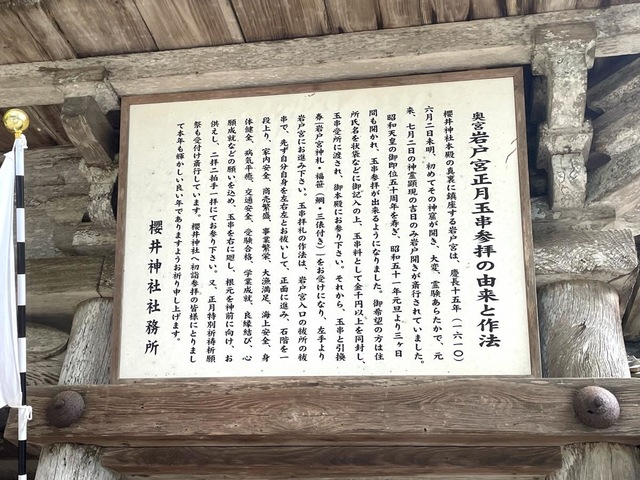 奥宮岩戸宮正月玉串参拝の由来と作法
櫻井神社本殿の真裏に鎮座する岩戸宮は、慶長十五年（一六一〇）
六月二日未明、初めてその神窟が開き、大変、霊験あらたかで、元
来、七月二日の神霊顕現の吉日のみ岩戸開きが斎行されていました。
昭和天皇の御即位五十周年を寿ぎ、昭和五十一年元旦より三ヶ日
間も開かれ、玉串参拝が出来るようになりました。御希望の方は住
所氏名を状袋などに御記入の上、玉串料として金千円以上を同封し、
玉串受所に渡され、御本殿にお参り下さい。それから、玉串と引換
券（岩戸宮神札・福笹〈鯛・三俵付き〉）をお受けになり、左手より
岩戸宮にお進み下さい。玉串拝礼の作法は、岩戸宮入口の祓所の祓
串で、先ず自分自身を左右左とお祓いして、正面に進み、石階を一
段上り、家内安全、商売繁盛、事業繁栄、大漁満足、海上安全、身
体健全、病気平癒、交通安全、受験合格、学業成就、良縁結び、心
願成就などの願いを込め、玉串を右に廻し、根元を神前に向け、お
供えし、二拝二拍手一拝にてお参り下さい。又、正月特別祈祷祈願
祭も受付け斎行しています。櫻井神社へ初詣参拝の皆様にとりまし
て本年も輝かしい良い年でありますようお祈り申し上げます。
櫻井神社社務所